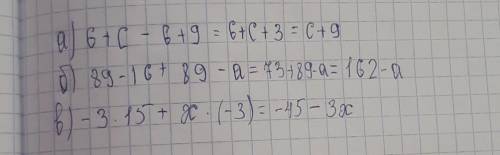 а) 6 + c - 6 + 9 = 6 + c + 3 = c + 9
б) 89 - 16 + 89 - a = 73 + 89 - a = 162 - a
в) -3 · 15 + x · (-3) = -45 - 3x